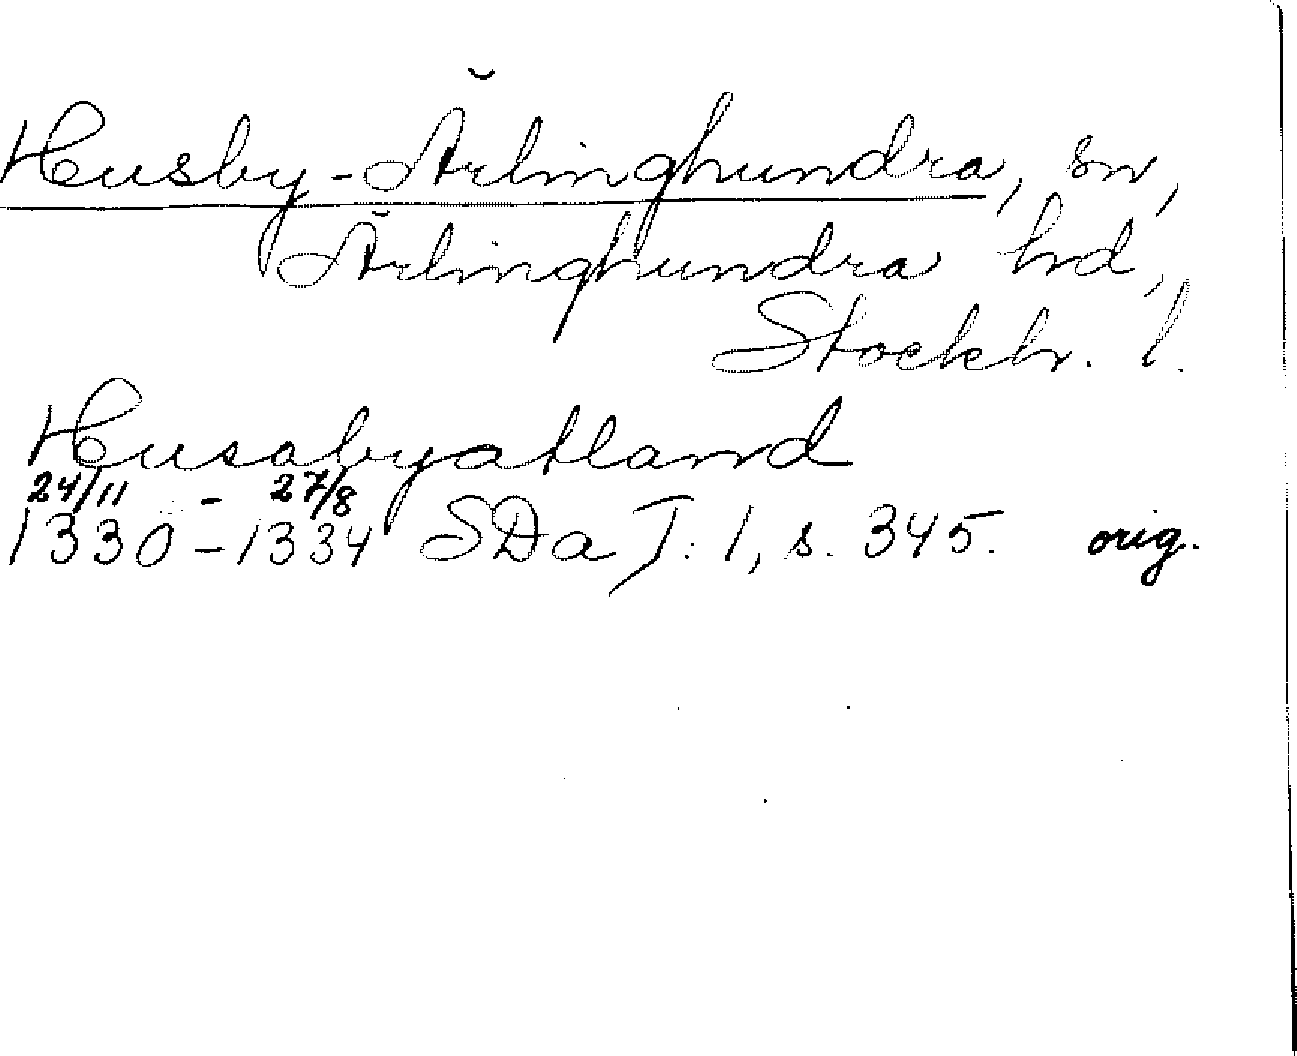 Husby-Ärlinghundra, sn,
Ärlinghundra hd,
Stockh. l.
Husabyatland
24/11 - 27/8
1330-1334 SDa J: 1, s. 345. orig.